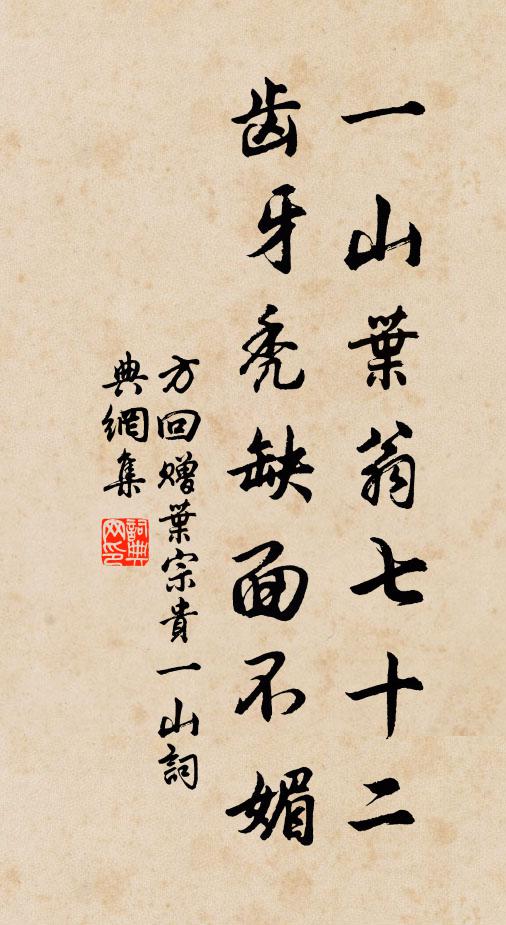 一山葉翁七十二
齿牙秃缺面不媚
方回赠葉宗貴一山詞
典網集
詞典網印